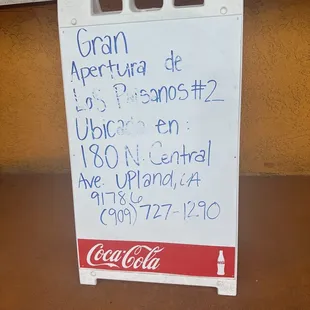 Gran
Apertura de
Los Paisanos #2
Ubicado en :
180 N. Central
Ave. UPland, CA
91786
(909) 727-1290
Coca-Cola